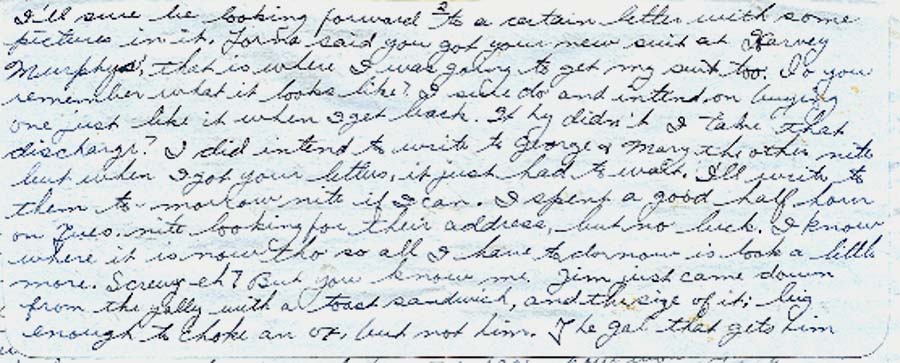 I'll sure be looking forward to a certain letter with some
pictures in it. Lorna said you got your new suit at Harvey
Murphys', that is where I was going to get my suit too. Do you
remember what it looks like? I sure do and intend on buying
one just like it when I get back. Why didn't I take that
discharge? I did intend to write to George & Mary the other nite
but when I got your letters, it just had to wait. I'll write to
them to-morrow nite if I can. I spent a good half hour
on Tues. nite looking for their address, but no luck. I know
where it is now tho so all I have to do now is look a little
more. Screwy eh? But you know me. Jim just came down
from the galley with a toast sandwich, and the size of it; big
enough to choke an ox, but not him. The gal that gets him